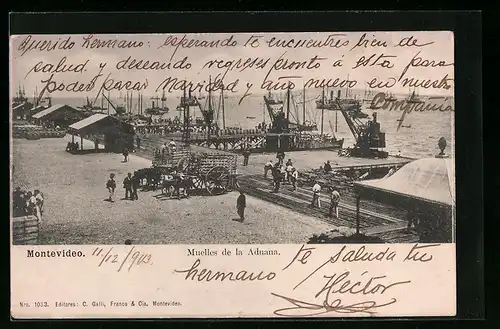 Querido hermano: esperando te encuentres bien de
salud y deseando regreses pronto á esta para
poder pasar Navidad y año nuevo en nuestra
Compañia
Montevideo. 11/12/903. Muelles de la Aduana.
te saluda tu
hermano Héctor
Nro. 1053. Editores: C. Galli, Franco & Cia, Montevideo.